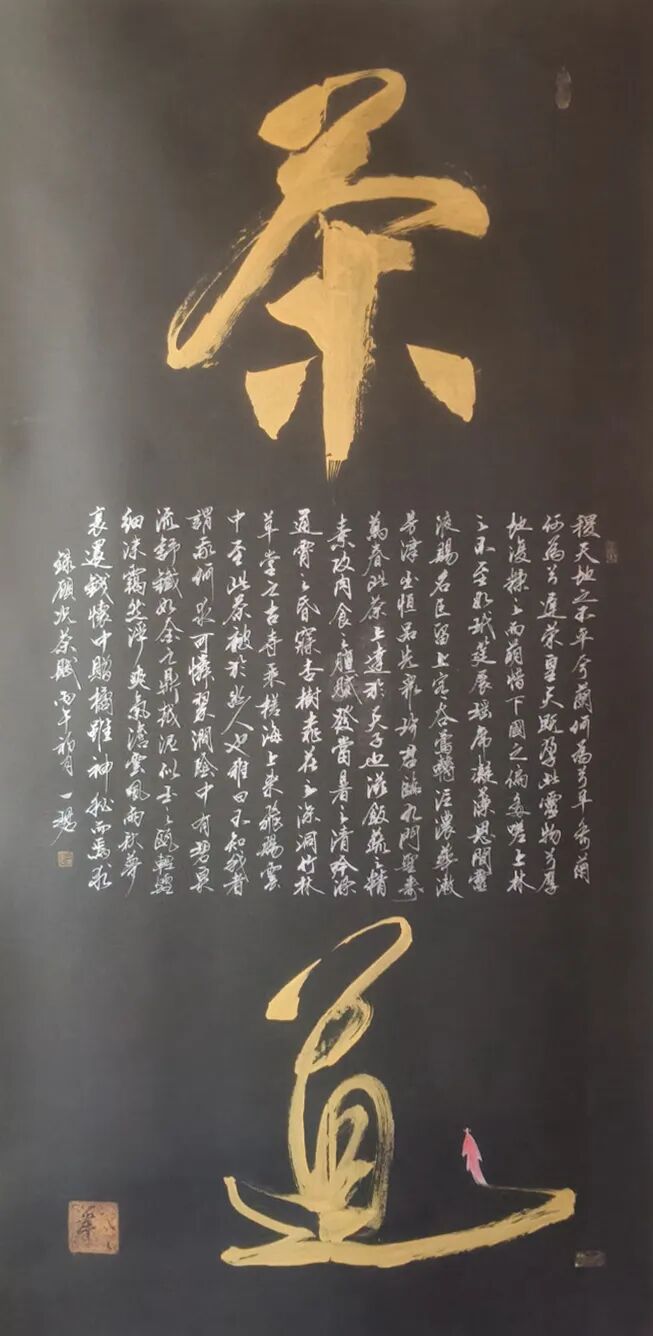 茶
稷天地之不平兮蘭何為兮早秀菊
何為兮遲榮皇天既孕此靈物兮厚
地復糅之而萌惜下國之偏多嗟上林
之不至如玳筵展瑤席凝藻思間靈
液賜名臣留上客谷鶯囀泛濃華漱
芳津出恒品先眾珍君臨九門聖壽
萬春此茶上達於天子也滋飯蔬之精
素攻肉食之膻膩發當暑之清吟滌
通宵之昏寐杏樹桃花之深洞竹林
草堂之古寺乘槎海上來飛錫雲
中至此茶被於幽人也雅曰不知我者
謂我何求可憐翠澗陰中有碧泉
流舒鐵如金之鼎越泥似玉之甌輕煙
細沫靄然浮爽氣澹雲風雨秋夢
裏還錢懷中贈橘雖神秘而焉求
錄顧況茶賦丙午初月一碧
道